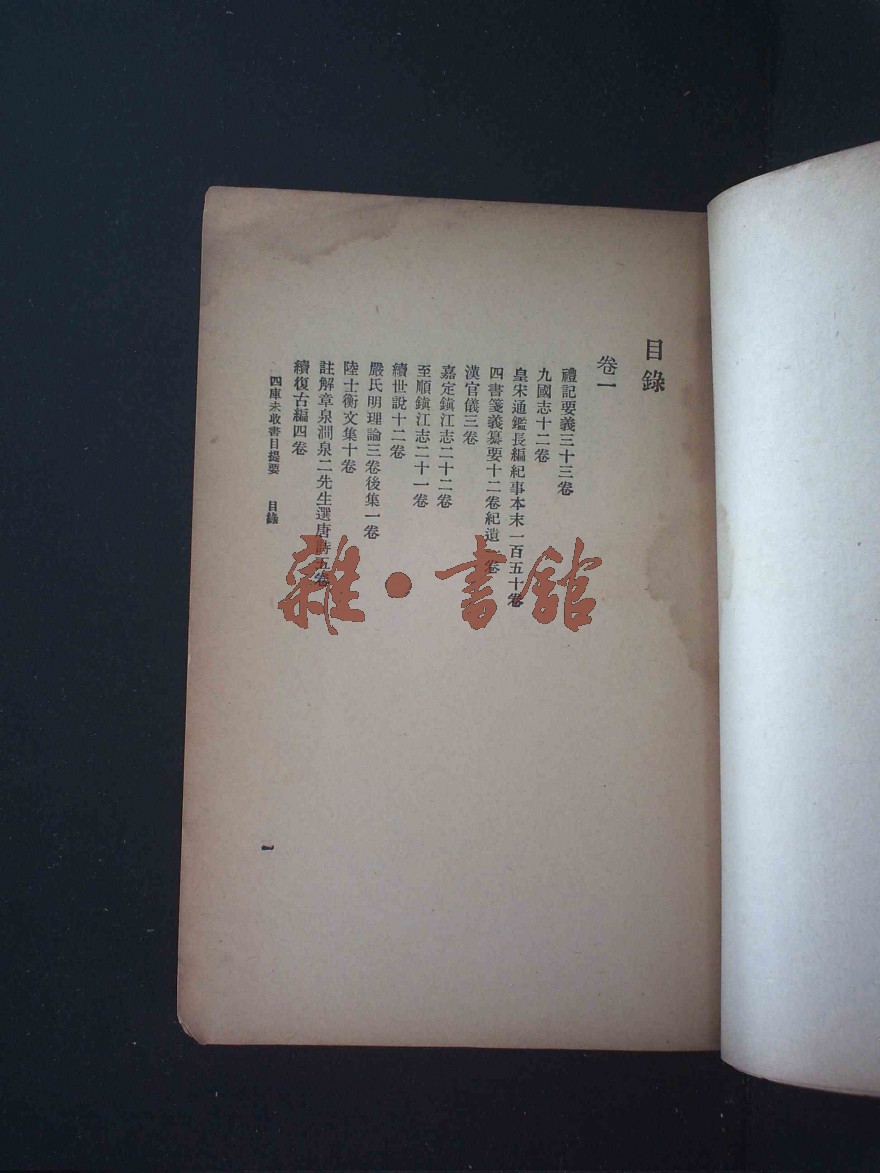 目錄
卷一
禮記要義三十三卷
九國志十二卷
皇宋通鑑長編紀事本末一百五十卷
四書箋義纂要十二卷紀遺一卷
漢官儀三卷
嘉定鎮江志二十二卷
至順鎮江志二十一卷
續世說十二卷
嚴氏明理論三卷後集一卷
陸士衡文集十卷
註解章泉澗泉二先生選唐詩五卷
續復古編四卷
四庫未收書目提要 目錄
一
雜·書館